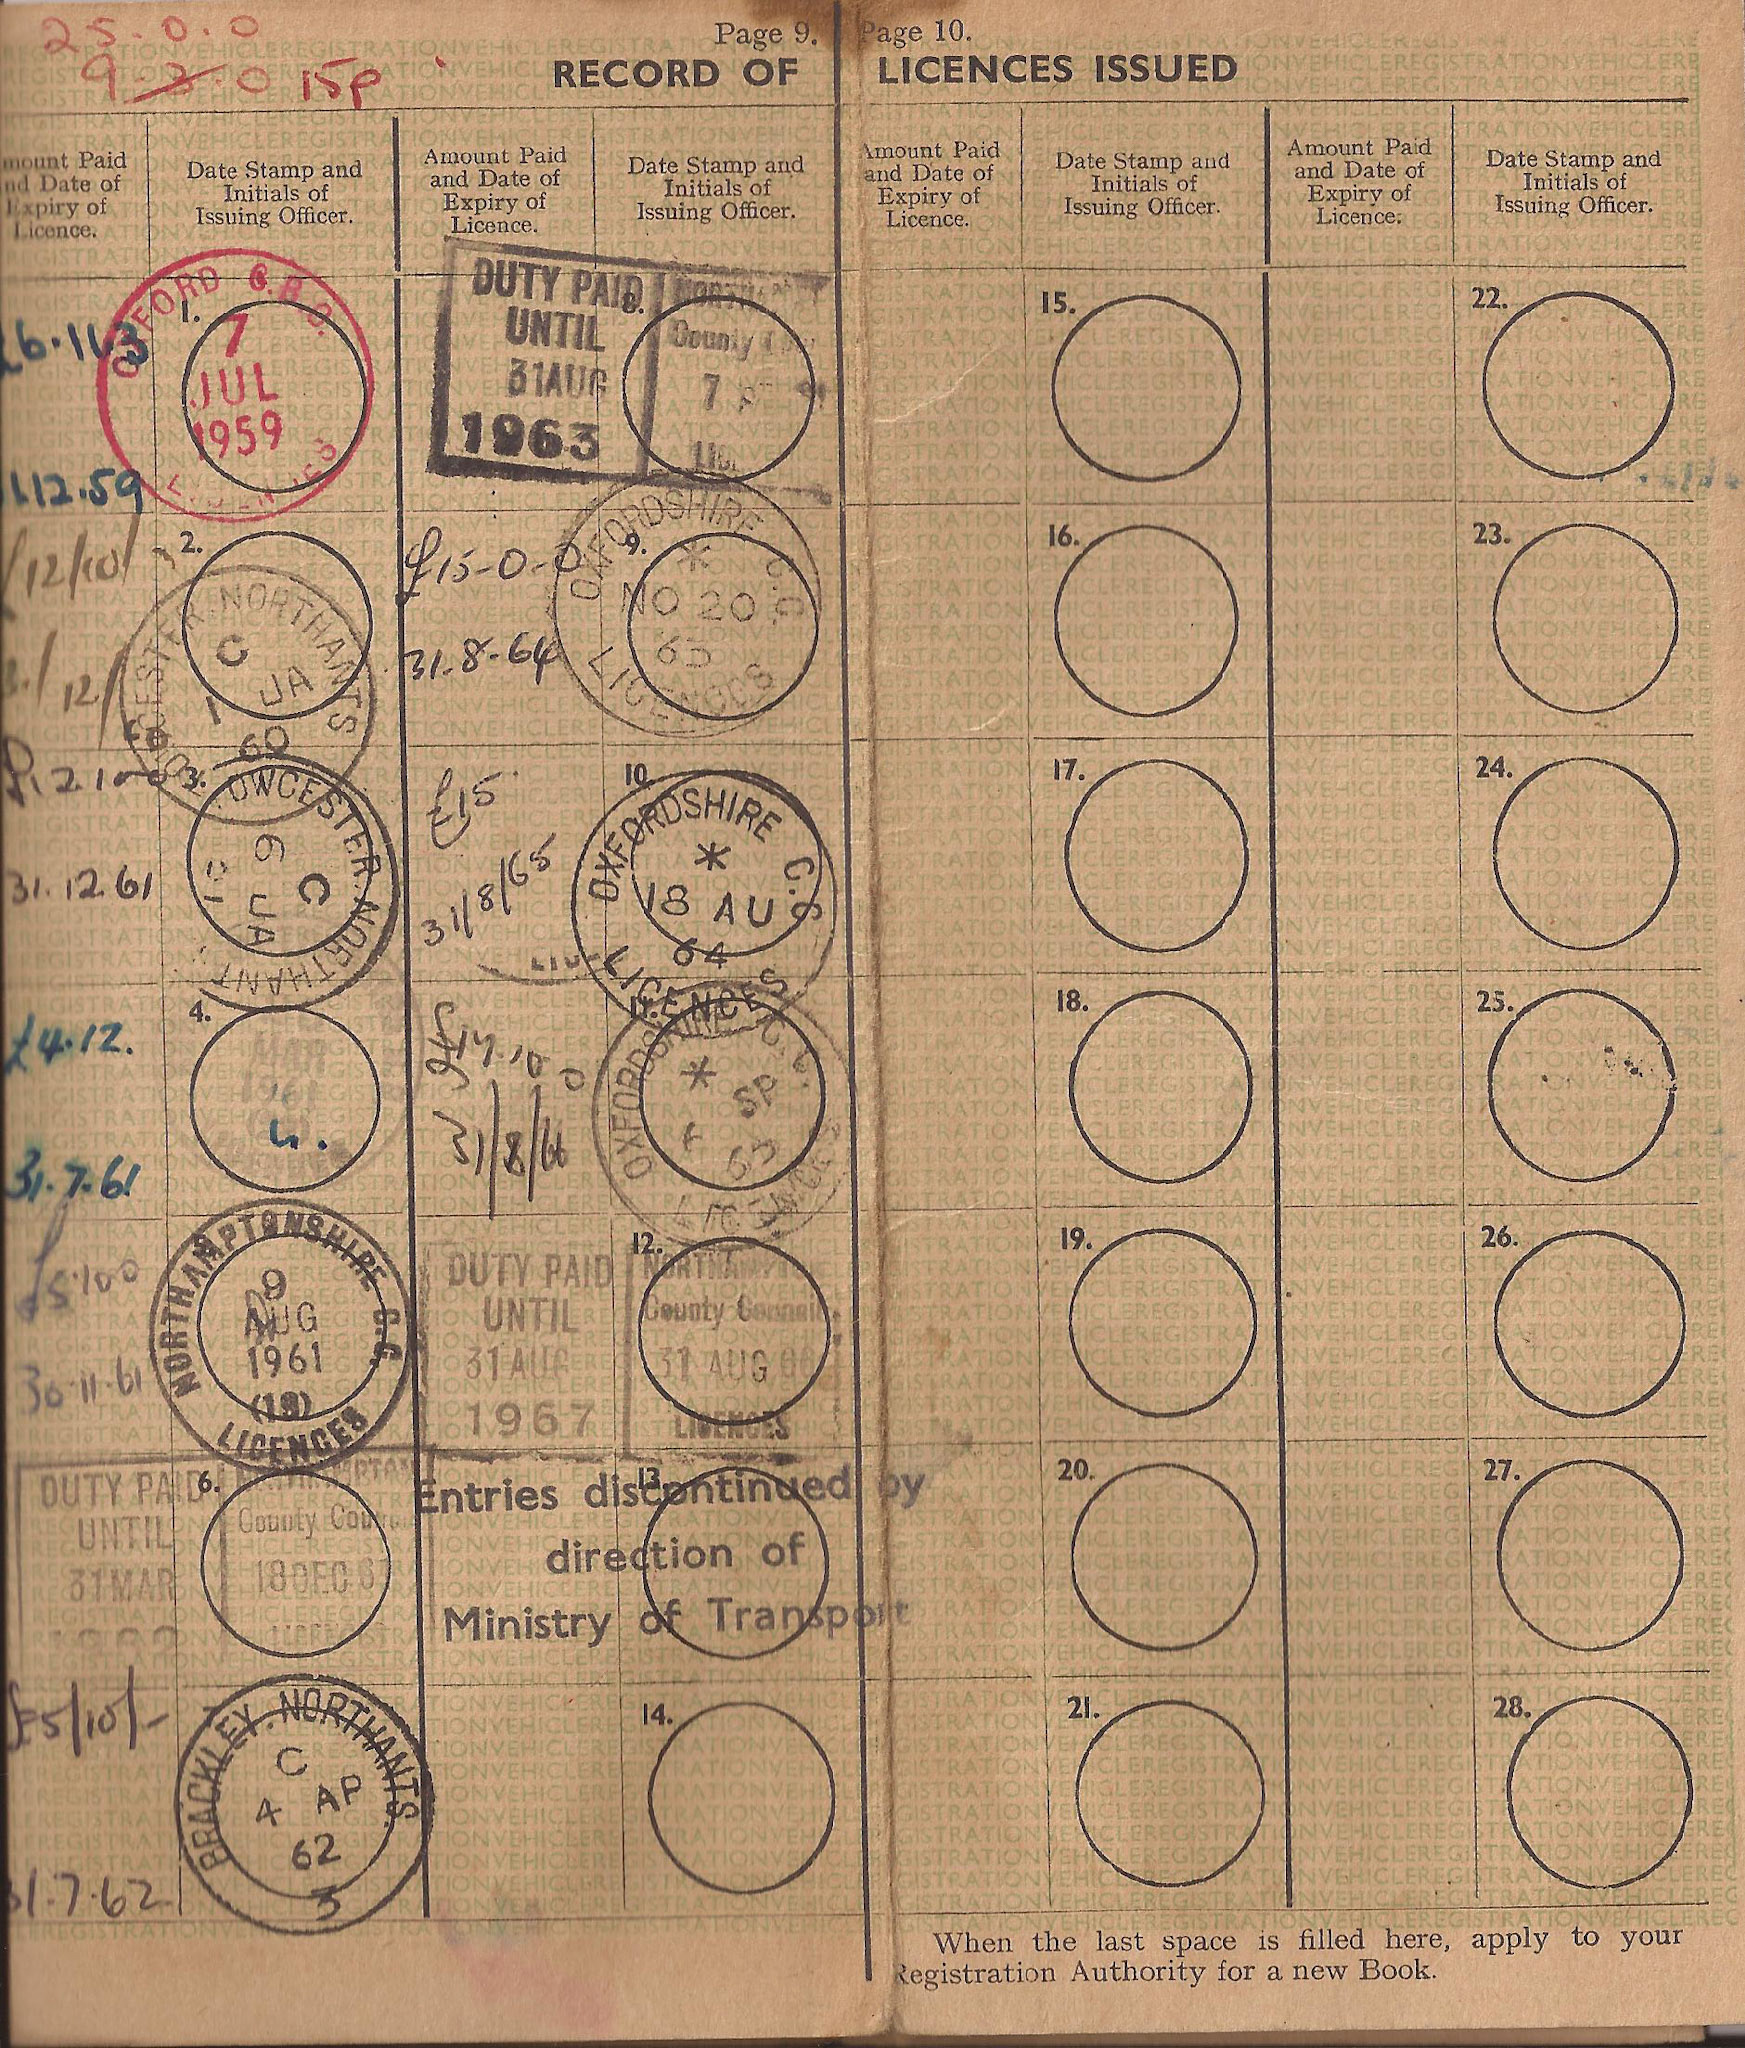 25.0.0
15p
Page 9.
Page 10.
RECORD OF LICENCES ISSUED
mount Paid
nd Date of
Expiry of
Licence.
Date Stamp and
Initials of
Issuing Officer.
Amount Paid
and Date of
Expiry of
Licence.
Date Stamp and
Initials of
Issuing Officer.
Amount Paid
and Date of
Expiry of
Licence.
Date Stamp and
Initials of
Issuing Officer.
Amount Paid
and Date of
Expiry of
Licence.
Date Stamp and
Initials of
Issuing Officer.
1.
7
JUL
1959
12.59
2.
NORTHANTS
C
1 JA
60
3.
TOWCESTER. NORTHANTS
C
6 JA
31.12.61
4.
£4.12.
1961
31.7.61
NORTHAMPTONSHIRE C.C.
9
AUG
1961
(19)
LICENCES
30.11.61
6.
DUTY PAID
UNTIL
31 MAR
County Council
18 DEC 6
£5/10/-
BRACKLEY. NORTHANTS.
C
4 AP
62
3
31.7.62
8.
DUTY PAID
UNTIL
31 AUG
1963
County
7
9.
£15-0-0
31.8.64
OXFORDSHIRE C.C.
NO 20
63
LICENCES
10.
£15
31/8/65
OXFORDSHIRE C.C.
18 AU
64
LICENCES
11.
£17.10.0
31/8/66
OXFORDSHIRE C.C.
SP
65
LICENCES
12.
DUTY PAID
UNTIL
31 AUG
1967
County Council
31 AUG
LICENCES
13.
Entries discontinued by
direction of
Ministry of Transport
14.
15.
16.
17.
18.
19.
20.
21.
22.
23.
24.
25.
26.
27.
28.
When the last space is filled here, apply to your
Registration Authority for a new Book.